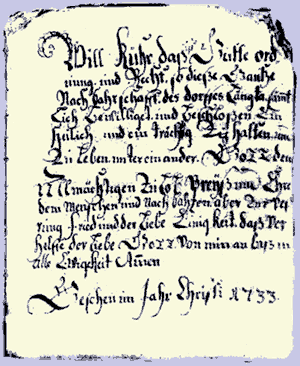 Will Kühr, daß Gutte ord
nung und Recht, so dieße Gantze
Nachbahrschafft des dorffes Langla sämt
Lich Bewilliget und Beschloßen Ein
heilich und ein trächtig Zu halten und
Zu Leben unter einander. GOTT dem
Allmächtigen Zu lob Preyß und Ehr
dem Menschen und Nachbahren aber Zur Bes
rung Fried und der Liebe Einigkeit. daß Ver
helffe der Liebe GOTT von nun an biß in
alle Ewigkeit Amen
Geschen im Jahr Christi 1733.